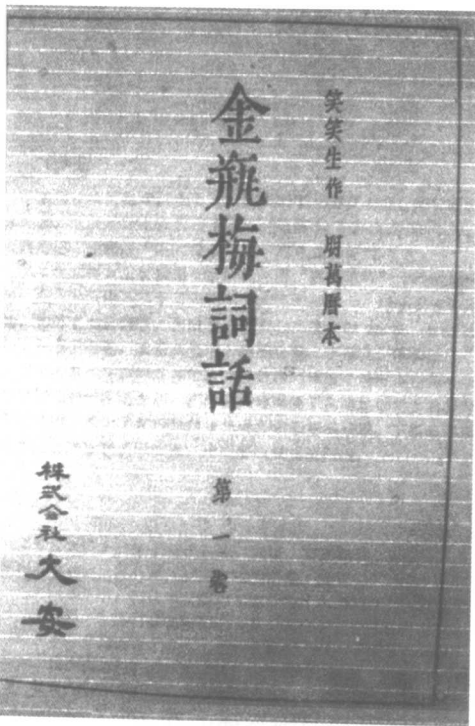 笑笑生作 明萬曆本
金瓶梅詞話 第一卷
株式会社 大安